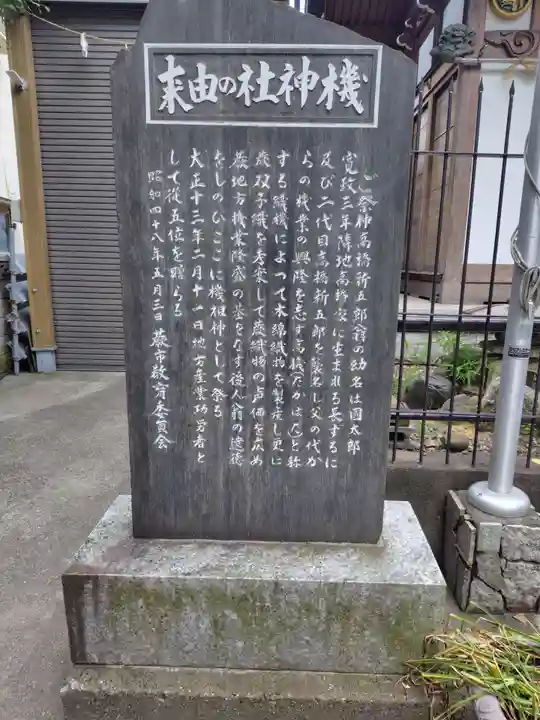 機神社の由来
ご祭神高橋新五郎翁の幼名は国太郎
寛政三年陣地高橋家に生まれる長ずるに
及び二代目高橋新五郎を襲名し父の代か
らの機業の興隆を志す高機たかはたと称
する織機によって木綿織物を製産し更に
双子織を考案して蕨織物の声価を広め
蕨地方機業隆盛の基をなす後人翁の遺徳
をしのびここに機祖神として祭る
大正十三年二月十一日地方産業功労者と
して従五位を贈らる
昭和四十八年五月三日 蕨市教育委員会